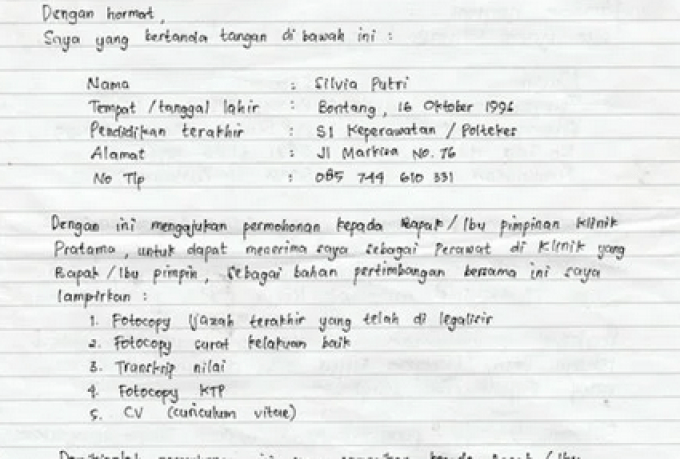 Dengan hormat,
Saya yang bertanda tangan di bawah ini :
Nama : Silvia Putri
Tempat / tanggal lahir : Bontang, 16 Oktober 1996
Pendidikan terakhir : S1 Keperawatan / Poltekes
Alamat : Jl Markisa No. 76
No Tlp : 085 744 610 331
Dengan ini mengajukan permohonan kepada Bapak / Ibu pimpinan Klinik
Pratama, untuk dapat menerima saya sebagai Perawat di Klinik yang
Bapak / Ibu pimpin, sebagai bahan pertimbangan bersama ini saya
lampirkan :
1. Fotocopy Ijazah terakhir yang telah di legalisir
2. Fotocopy surat kelakuan baik
3. Transkrip nilai
4. Fotocopy KTP
5. CV (curiculum vitae)